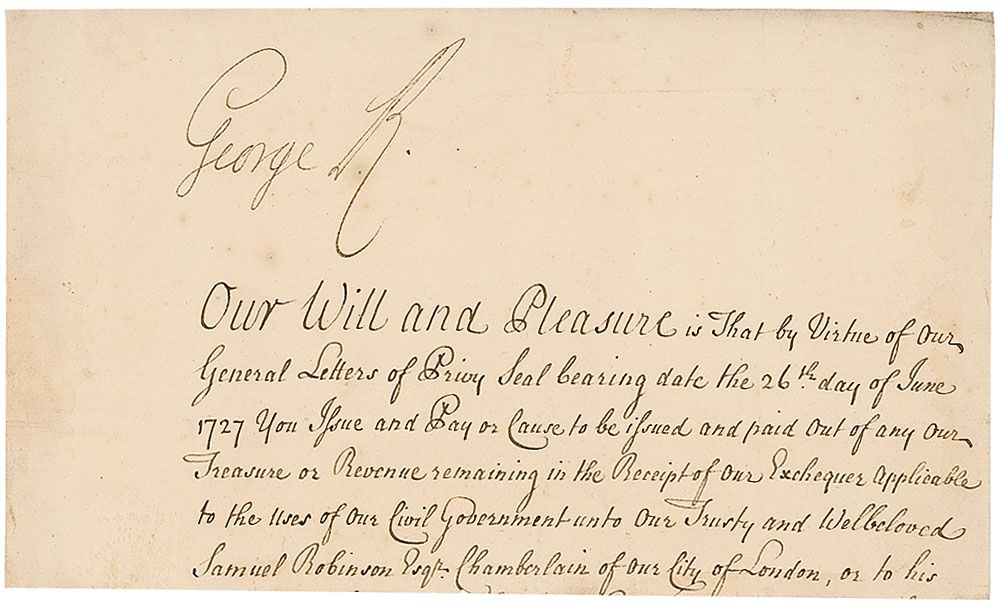 George R.
Our Will and Pleasure is That by Virtue of Our
General Letters of Privy Seal bearing date the 26th day of June
1727 You Issue and Pay or Cause to be issued and paid Out of any Our
Treasure or Revenue remaining in the Receipt of Our Exchequer Applicable
to the Uses of Our Civil Government unto Our Trusty and Welbeloved
Samuel Robinson Esqr. Chamberlain of Our City of London, or to his